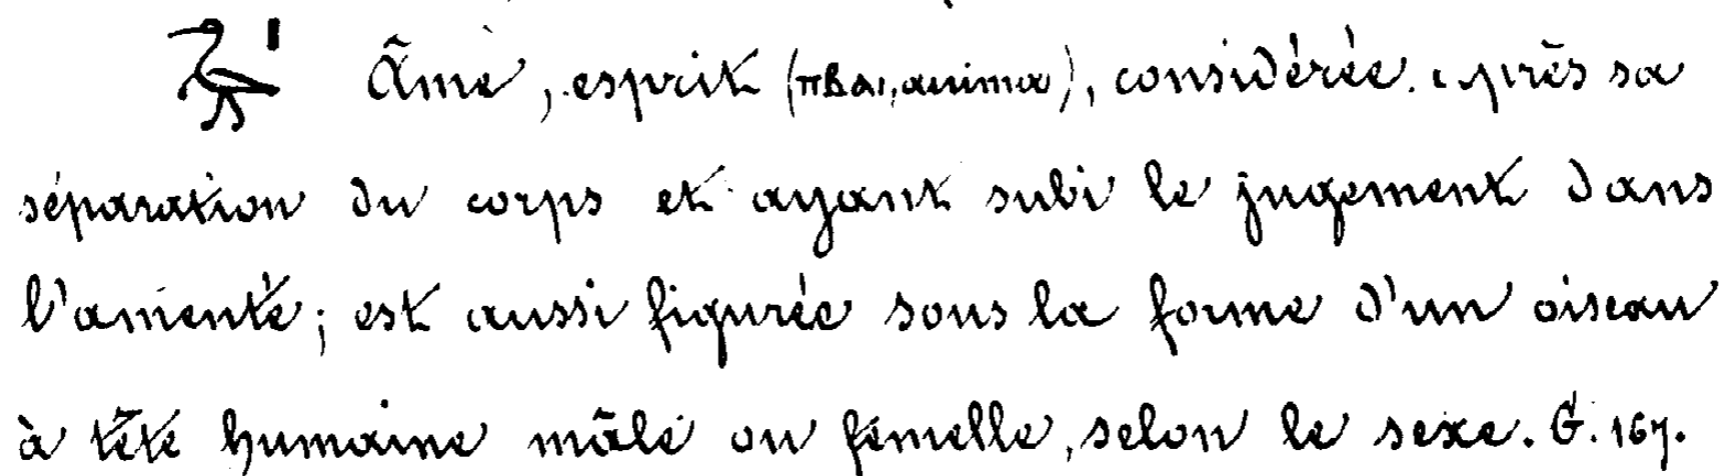 𓅡𓏤 Âme, esprit (πβαι, anima), considérée après sa
séparation du corps et ayant subi le jugement dans
l'amenté; est aussi figurée sous la forme d'un oiseau
à tête humaine mâle ou femelle, selon le sexe. G. 167.